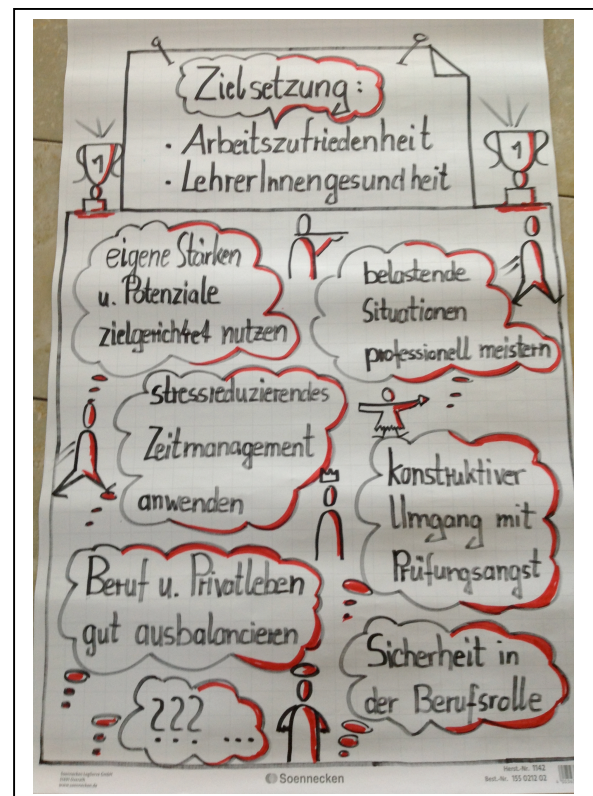 Zielsetzung:
• Arbeitszufriedenheit
• LehrerInnengesundheit
1
1
eigene Stärken
u. Potenziale
zielgerichtet nutzen
belastende
Situationen
professionell meistern
stressreduzierendes
Zeitmanagement
anwenden
konstruktiver
Umgang mit
Prüfungsangst
Beruf u. Privatleben
gut ausbalancieren
Sicherheit in
der Berufsrolle
??? ...
Soennecken
www.soennecken.de
Herst.-Nr. 1142
Best.-Nr. 155 0212 02